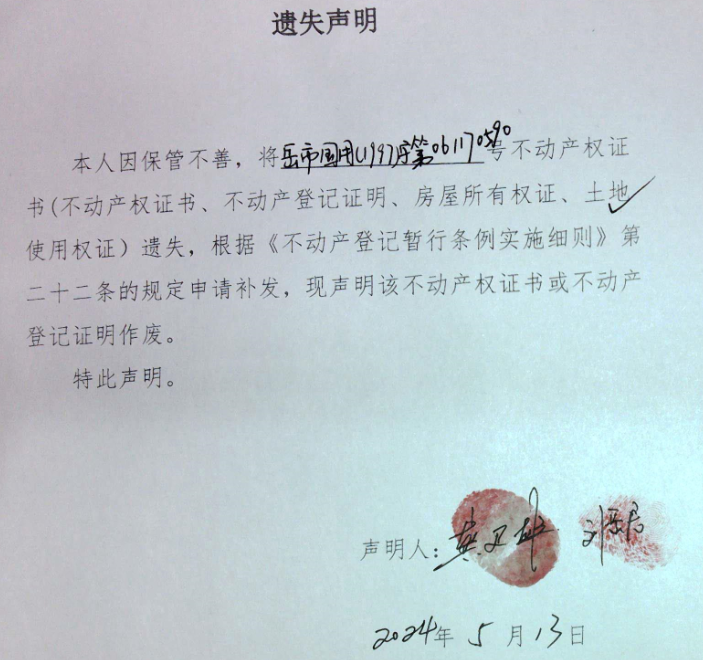 遗失声明
本人因保管不善，将岳市国用(1997)字第061170590号不动产权证
书(不动产权证书、不动产登记证明、房屋所有权证、土地
使用权证）遗失，根据《不动产登记暂行条例实施细则》第
二十二条的规定申请补发，现声明该不动产权证书或不动产
登记证明作废。
特此声明。
声明人：
2024年 5 月 13 日